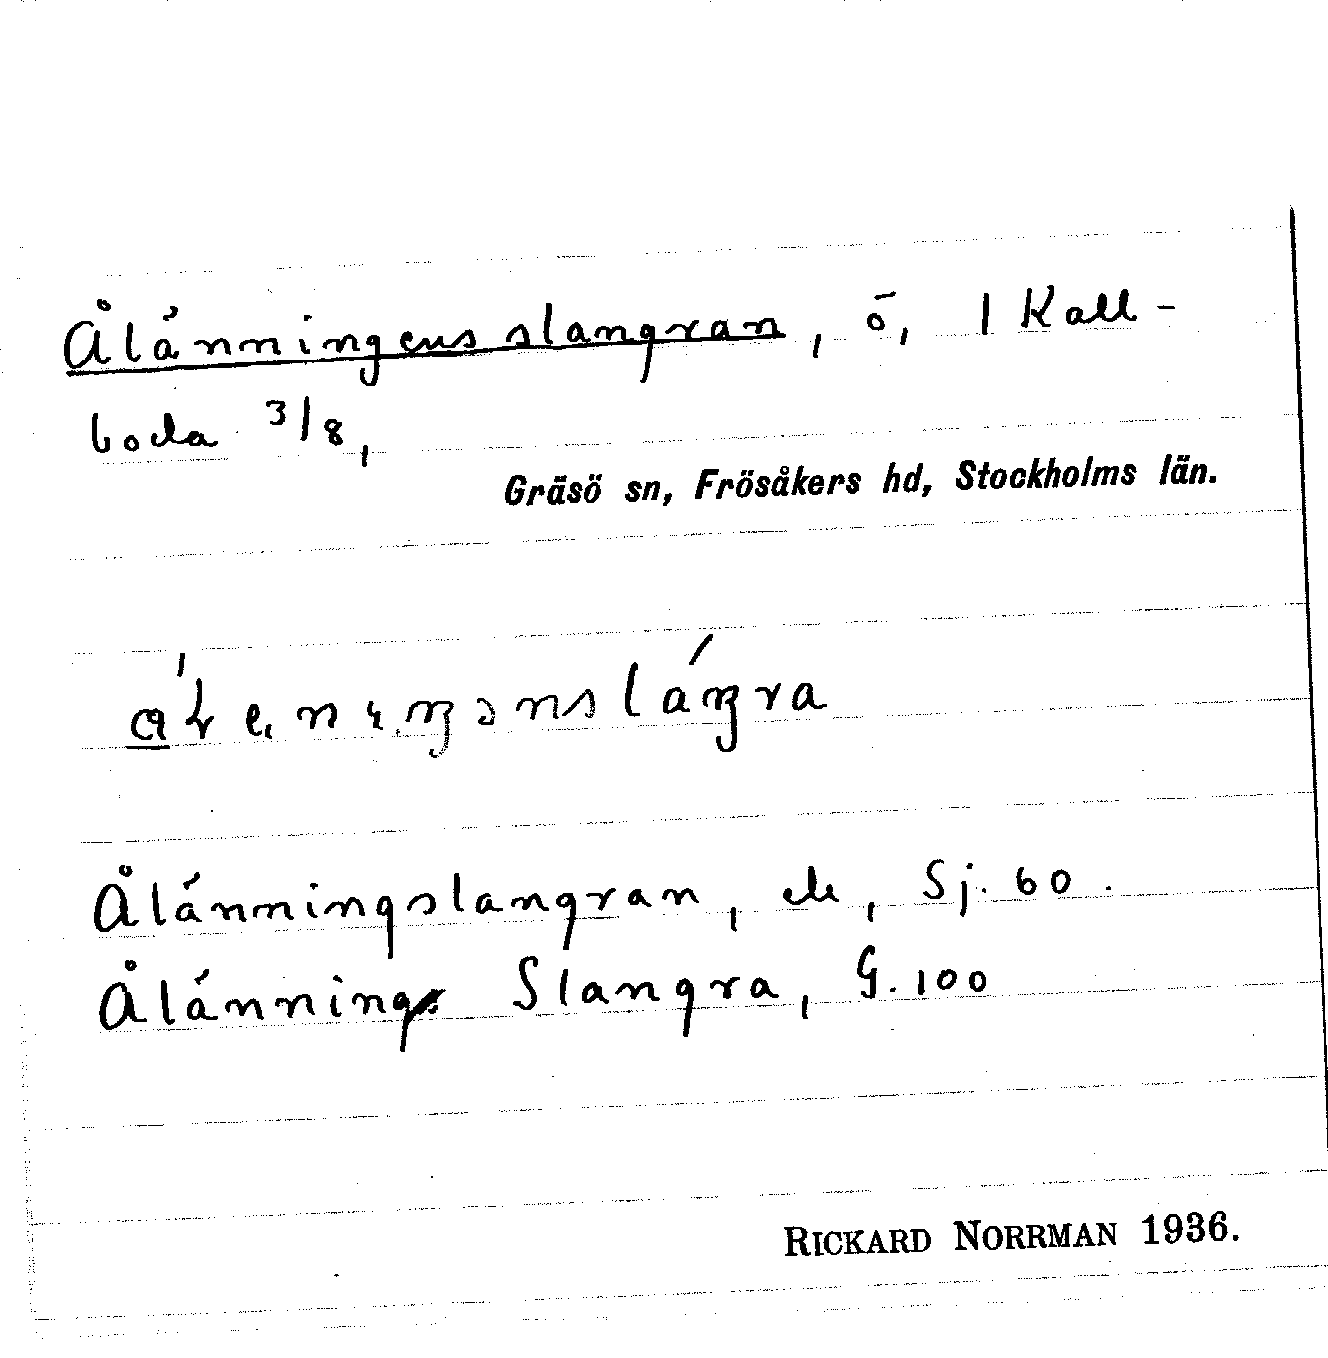 Ålänningens slangran, ö, 1 Kall-
boda 3/8,
Gräsö sn, Frösåkers hd, Stockholms län.
Ålänningslangran, ek, Sj. 60.
Ålänning Slangra, G. 100
RICKARD NORRMAN 1936.